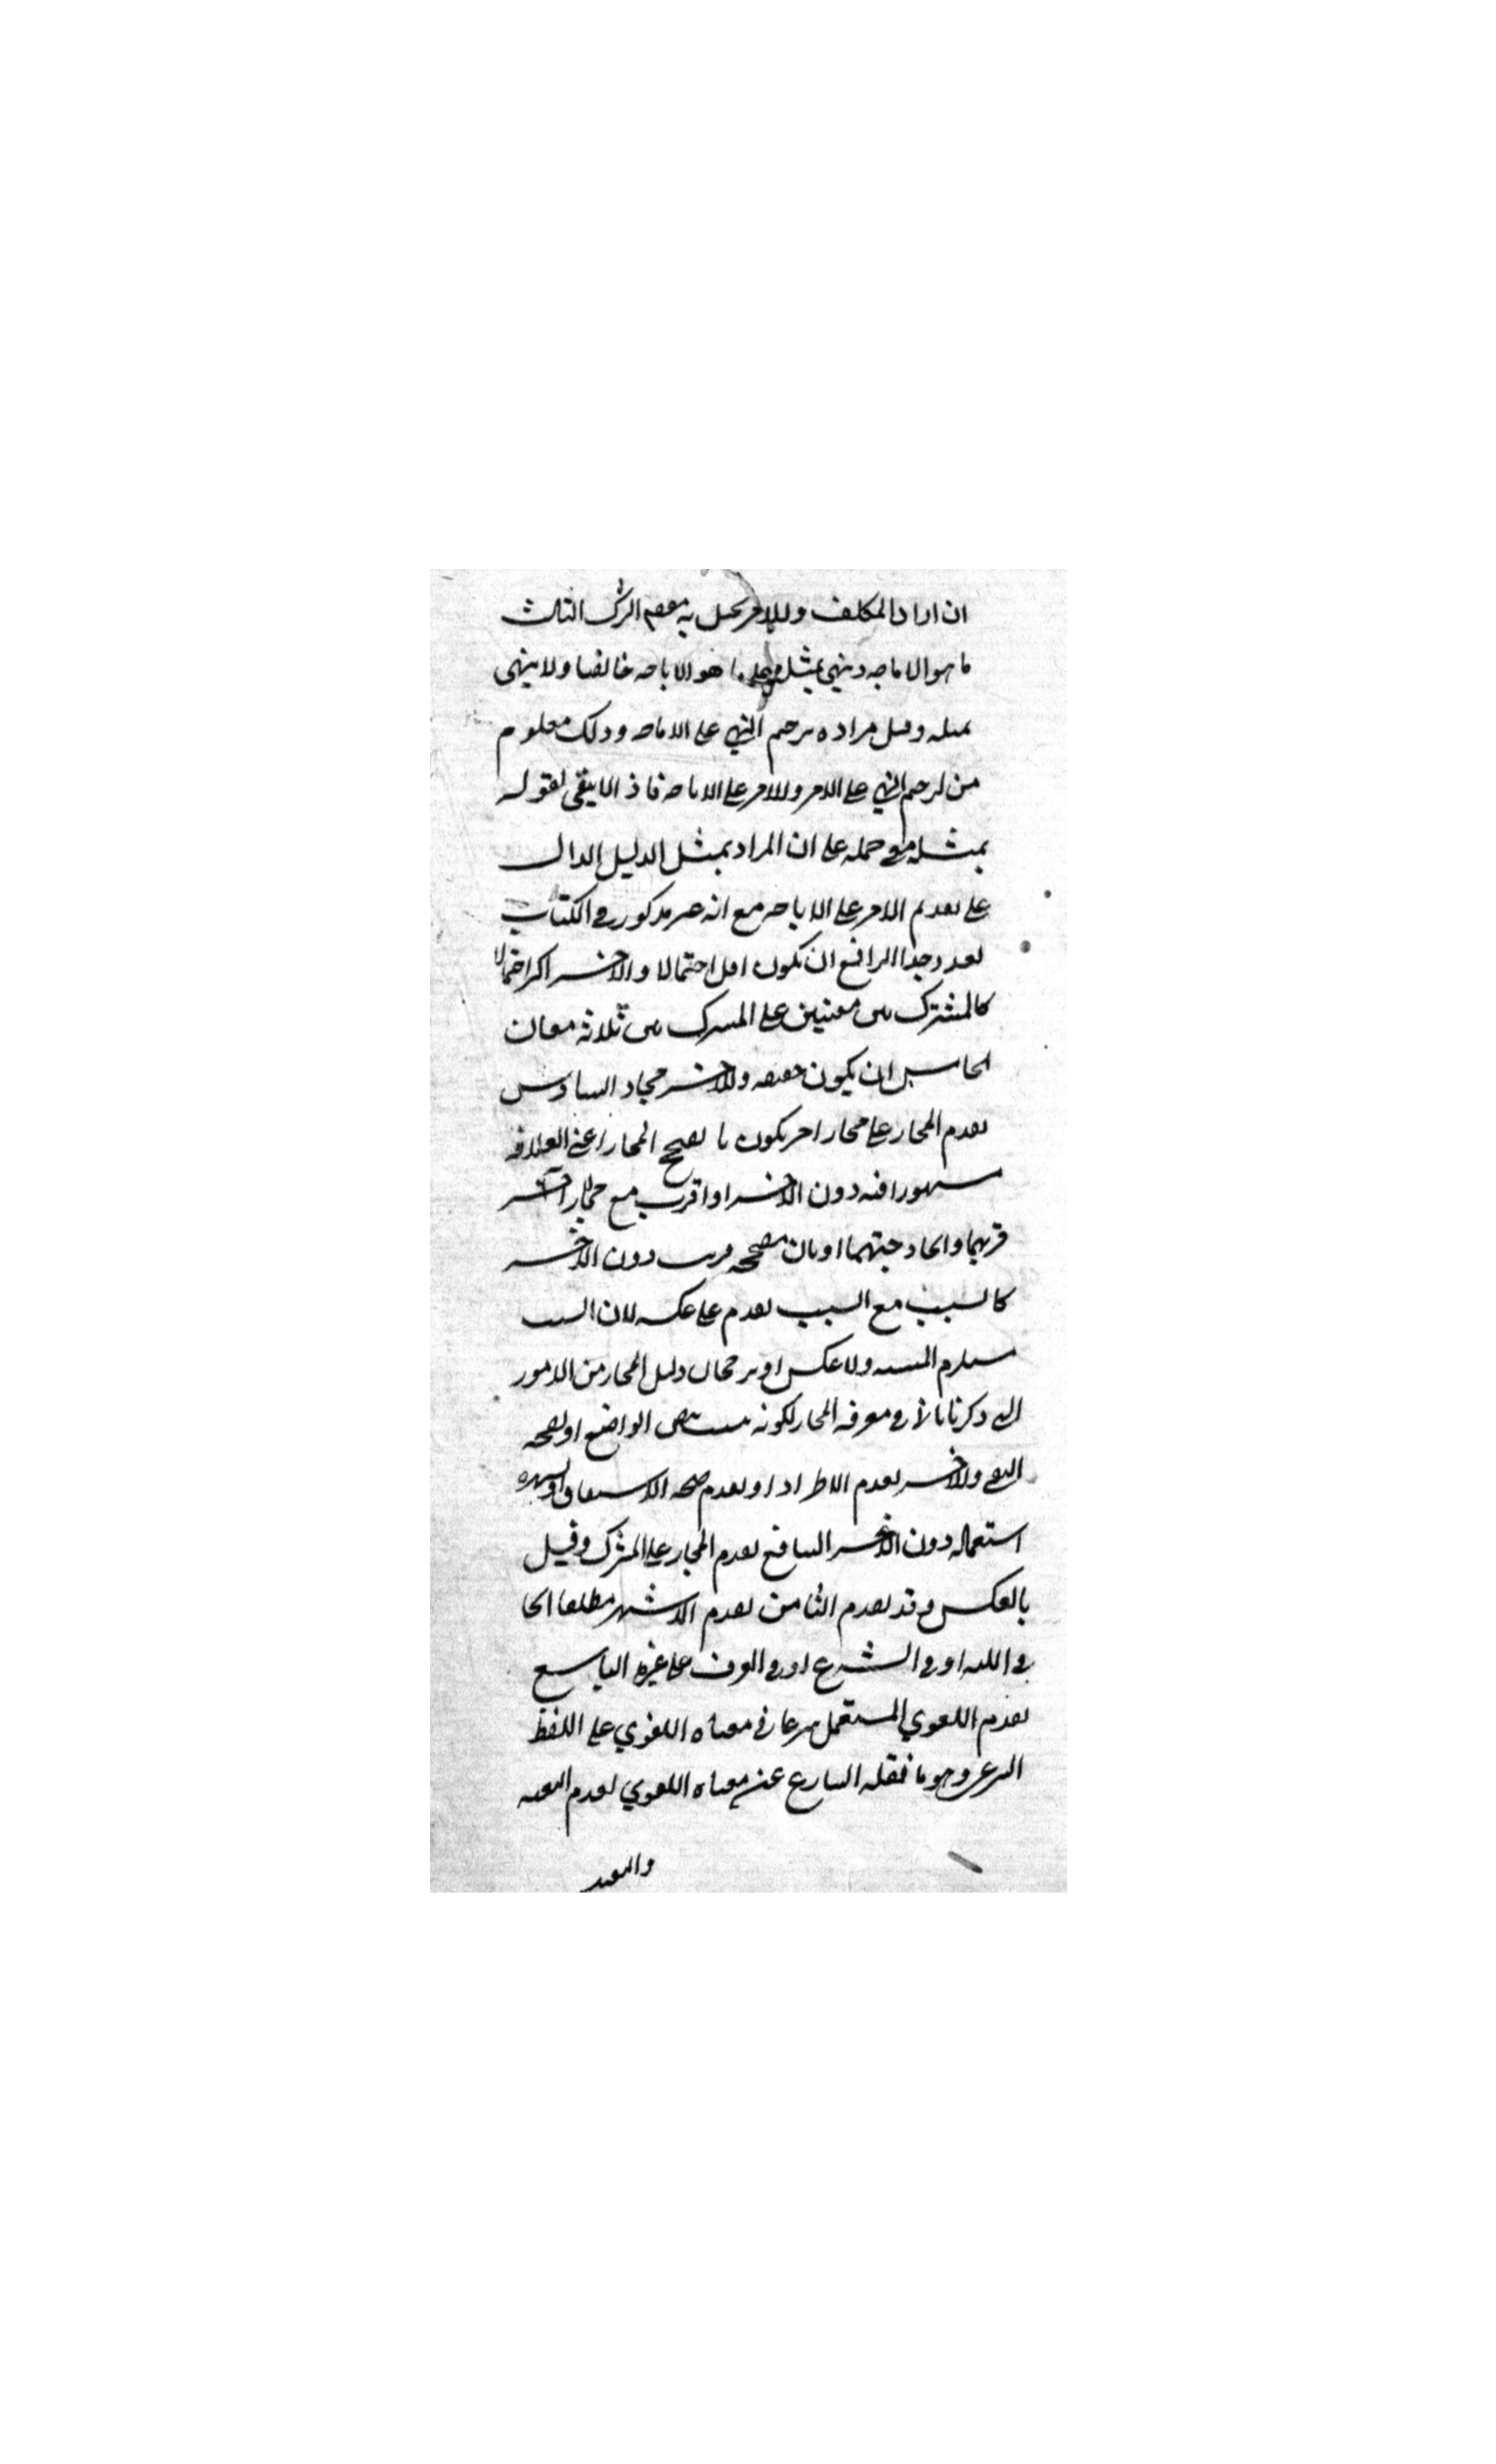 ان اراد المكلف وللامر يحمل به مقصه الترك الثالث
ما هو الاباحه ونهي بمثل ما هو الاباحه خالفا ولا ينهى
بمثله وقيل مراده ترجيح النهي على الاباحه وذلك معلوم
من ترجيح النهي على الامر وللامر على الاباحه فاذ الا يبقى لقوله
بمثله مع حمله على ان المراد بمثل الدليل الدال
على تقديم الامر على الاباحه مع انه غير مذكور في الكتاب
بعد وجدا الرابع ان يكون اقل احتمالا والاخر اكثر احتمالا
كالمشترك بين معنيين على المشترك بين ثلاثه معان
الخامس ان يكون حقيقه والاخر مجاز السادس
تقدم المجاز على مجاز اخر بكون ما يصحح المجاز اعني العلاقه
مشهورا فيه دون الاخر او اقرب مع مجاز اخر
قربهما واتحاد جهتهما او بان مصححه قريب دون الاخر
كالسبب مع المسبب يقدم على عكسه لان السبب
يستلزم المسبب ولا عكس او برجحان دليل المجاز من الامور
التي ذكرنا بالا في معرفه المجاز لكونه بنص الواضع او لصحه
النفي والاخر بعدم الاطراد او بعدم صحه الاشتقاق او لشهره
استعماله دون الاخر السابع تقدم المجاز على المشترك وقيل
بالعكس وقد تقدم الثامن تقدم الاشهر مطلقا اما
في اللغه او في الشرع او في العرف على غيره التاسع
تقدم اللغوي المستعمل شرعا في معناه اللغوي على اللفظ
الشرعي وهو ما نقله الشارع عن معناه اللغوي لعدم التغيير